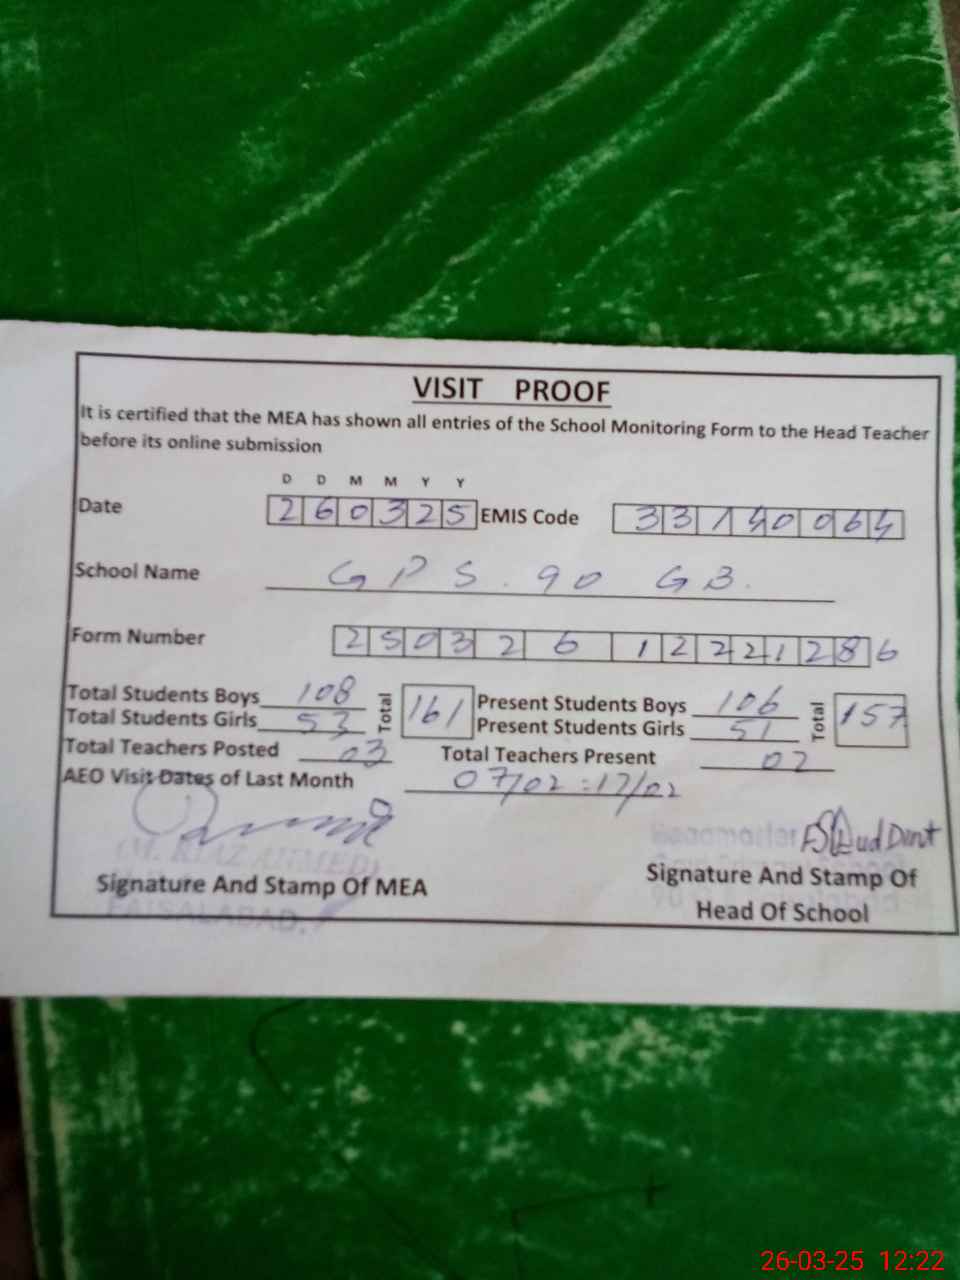 VISIT PROOF
It is certified that the MEA has shown all entries of the School Monitoring Form to the Head Teacher
before its online submission
D D M M Y Y
Date 260325 EMIS Code 33140064
School Name GPS. 90 GB.
Form Number 250326 12221286
Total Students Boys 108 Total 161 Present Students Boys 106 Total 157
Total Students Girls 53 Present Students Girls 51
Total Teachers Posted 03 Total Teachers Present 02
AEO Visit Dates of Last Month 07/02 : 17/02
(M. RIAZ AHMED) Headmaster
Signature And Stamp Of MEA Signature And Stamp Of
FAISALABAD. Head Of School
26-03-25 12:22